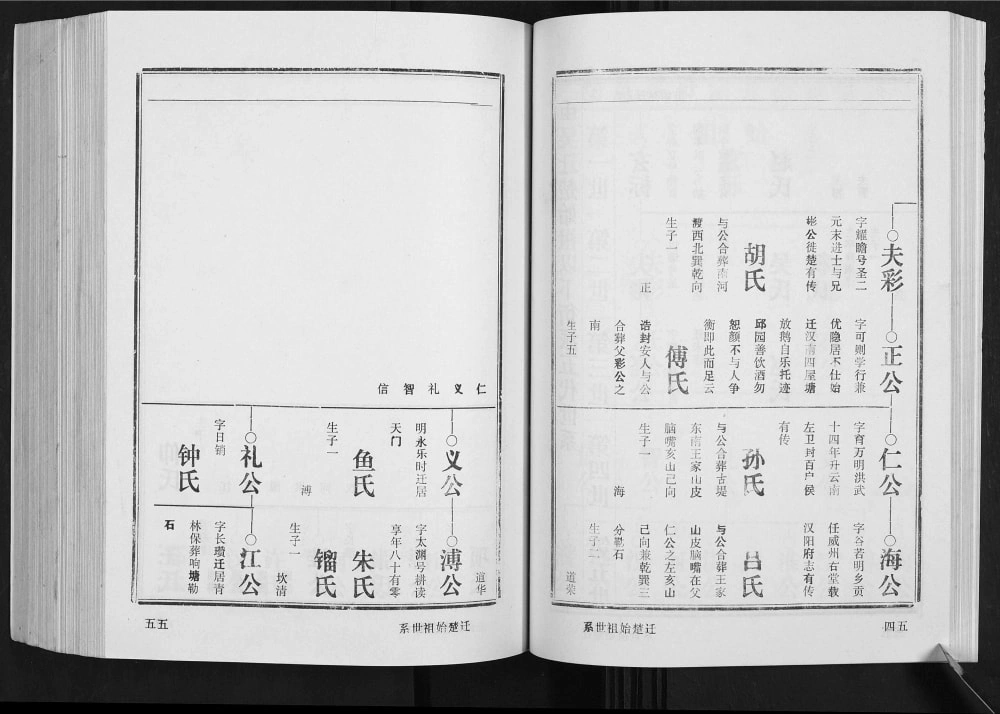 夫彩
字耀瞻号圣二
元末进士与兄
彬公徙楚有传
胡氏
与公合葬南河
渡西北巽乾向
生子一
正
正公
字可则学行兼
优隐居不仕始
迁汉南四屋塘
放鹅自乐托迹
邱园善饮酒勿
恕颜不与人争
衡即此而足云
傅氏
诰封安人与公
合葬父彩公之
南
生子五
仁公
字育万明洪武
十四年升云南
左卫封百户侯
有传
孙氏
与公合葬古堤
东南王家山皮
脑嘴亥山己向
生子一
海
海公
字谷若明乡贡
任威州右堂载
汉阳府志有传
吕氏
与公合葬王家
山皮脑嘴在父
仁公之左亥山
己向兼乾巽三
分鹗石
生子二
道荣
迁楚始祖世系
四五
道华
仁义礼智信
义公
明永乐时迁居
天门
鱼氏
生子一
溥
溥公
字太渊号耕读
享年八十有零
朱氏
镏氏
生子一
坎清
礼公
字日销
钟氏
江公
字长瓒迁居青
林保葬响塘勒
石
迁楚始祖世系
五五